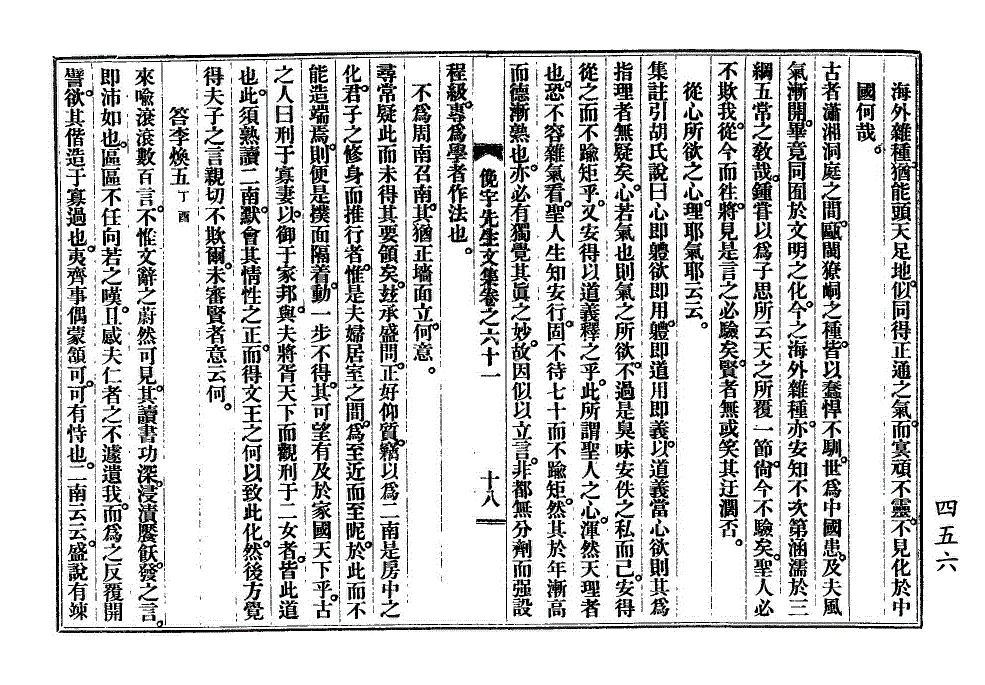 海外雜種。猶能頭天足地。似同得正通之氣。而冥頑不靈。不見化於中
國何哉。
古者瀟湘洞庭之間。甌閩獠峒之種。皆以蠢悍不馴。世爲中國患。及夫風
氣漸開。畢竟同囿於文明之化。今之海外雜種。亦安知不次第涵濡於三
綱五常之敎哉。鍾嘗以爲子思所云天之所覆一節。尙今不驗矣。聖人必
不欺我。從今而往。將見是言之必驗矣。賢者無或笑其迂濶否。
從心所欲之心。理耶氣耶云云。
集註引胡氏說曰心卽軆欲卽用。軆卽道用卽義。以道義當心欲則其爲
指理者無疑矣。心若氣也則氣之所欲。不過是臭味安佚之私而已。安得
從之而不踰矩乎。又安得以道義釋之乎。此所謂聖人之心。渾然天理者
也。恐不容雜氣看。聖人生知安行。固不待七十而不踰矩。然其於年漸高
而德漸熟也。亦必有獨覺其眞之妙。故因似以立言。非都無分劑而强設
俛宇先生文集卷之六十一
十八
程級。專爲學者作法也。
不爲周南召南。其猶正墻面立。何意。
尋常疑此而未得其要領矣。玆承盛問。正好仰質。竊以爲二南是房中之
化。君子之修身而推行者。惟是夫婦居室之間。爲至近而至昵。於此而不
能造端焉。則便是撲面隔着。動一步不得。其可望有及於家國天下乎。古
之人曰刑于寡妻。以御于家邦。與夫將胥天下而觀刑于二女者。皆此道
也。此須熟讀二南。默會其情性之正。而得文王之何以致此化。然後方覺
得夫子之言親切不欺爾。未審賢者意云何。
答李煥五 丁酉
來喩滾滾數百言。不惟文辭之蔚然可見。其讀書功深。浸漬饜飫。發之言。
卽沛如也。區區不任向若之嘆。且感夫仁者之不遽遺我。而爲之反覆開
譬。欲其偕造于寡過也。夷齊事偶蒙頷可。可有恃也。二南云云。盛說有竦
四五六